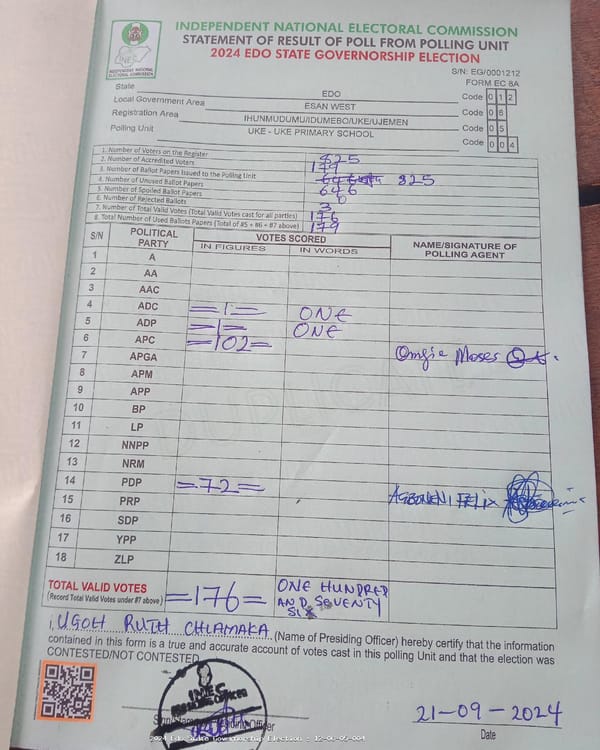 INDEPENDENT NATIONAL ELECTORAL COMMISSION
STATEMENT OF RESULT OF POLL FROM POLLING UNIT
2024 EDO STATE GOVERNORSHIP ELECTION
INEC
INDEPENDENT NATIONAL
ELECTORAL COMMISSION
S/N: EG/0001212
FORM EC 8A
State EDO Code 0 1 2
Local Government Area ESAN WEST Code 0 6
Registration Area IHUNMUDUMU/IDUMEBO/UKE/UJEMEN Code 0 5
Polling Unit UKE - UKE PRIMARY SCHOOL Code 0 0 4
1. Number of Voters on the Register 825
2. Number of Accredited Voters 179
3. Number of Ballot Papers Issued to the Polling Unit 825
4. Number of Unused Ballot Papers 646
5. Number of Spoiled Ballot Papers 0
6. Number of Rejected Ballots 3
7. Number of Total Valid Votes (Total Valid Votes cast for all parties) 176
8. Total Number of Used Ballots Papers (Total of #5 + #6 + #7 above) 179
S/N POLITICAL PARTY VOTES SCORED NAME/SIGNATURE OF POLLING AGENT
IN FIGURES IN WORDS
1 A
2 AA
3 AAC
4 ADC =1= ONE
5 ADP =1= ONE
6 APC =102=
7 APGA Moses
8 APM
9 APP
10 BP
11 LP
12 NNPP
13 NRM
14 PDP =72=
15 PRP FELIX
16 SDP
17 YPP
18 ZLP
TOTAL VALID VOTES =176= ONE HUNDRED
(Record Total Valid Votes under #7 above) AND SEVENTY
SIX
I, UGOH RUTH CHIAMAKA (Name of Presiding Officer) hereby certify that the information
contained in this form is a true and accurate account of votes cast in this polling Unit and that the election was
CONTESTED/NOT CONTESTED
INEC
PRESIDING OFFICER
21-09-2024
Date
2024 Edo State Governorship Election - 12-06-05-004